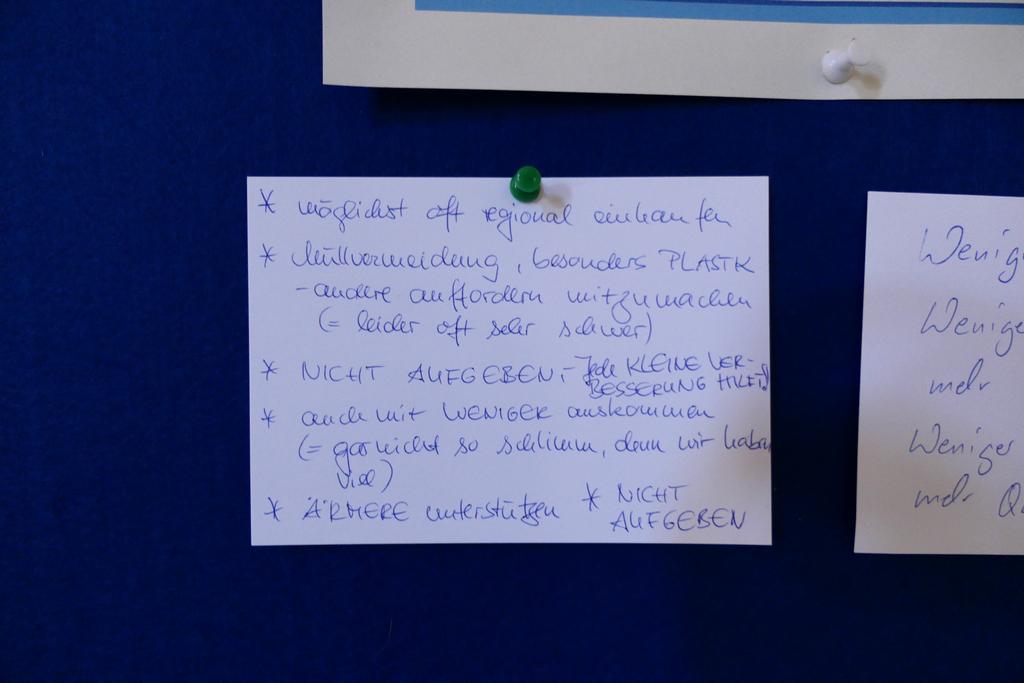 * möglichst oft regional einkaufen
* Müllvermeidung, besonders PLASTIK
- andere auffordern mitzumachen
(= leider oft sehr schwer)
* NICHT AUFGEBEN, - Jede KLEINE VER-
BESSERUNG HILFT!
* auch mit WENIGER auskommen
(= gar nicht so schlimm, denn wir haben
viel)
* ÄRMERE unterstützen * NICHT
AUFGEBEN
Wenig
Wenige
mehr
Weniger
mehr Qu